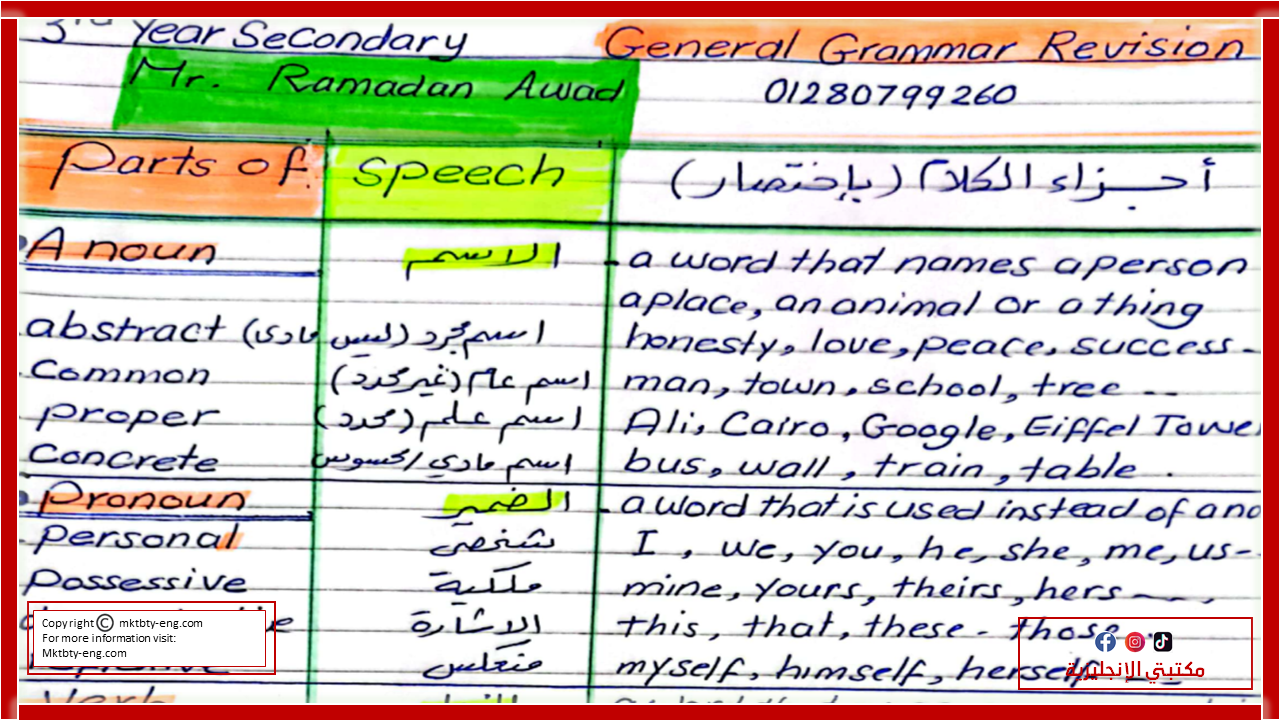 3rd Year Secondary General Grammar Revision
Mr. Ramadan Awad 01280799260
Parts of Speech أجزاء الكلام (بإختصار)
A noun الاسم - a word that names a person
a place, an animal or a thing
abstract اسم مجرد (ليس مادى) honesty, love, peace, success -
Common اسم عام (غير محدد) man, town, school, tree --
Proper اسم علم (محدد) Ali, Cairo, Google, Eiffel Tower
Concrete اسم مادي / محسوس bus, wall, train, table.
Pronoun الضمير - a word that is used instead of a no
personal شخصى I, we, you, he, she, me, us--
Possessive ملكية mine, yours, theirs, hers ---,
الاشارة this, that, these - those
منعكس myself, himself, herself
Verb
Copyright © mktbty-eng.com
For more information visit:
Mktbty-eng.com
مكتبتي الإنجليزية